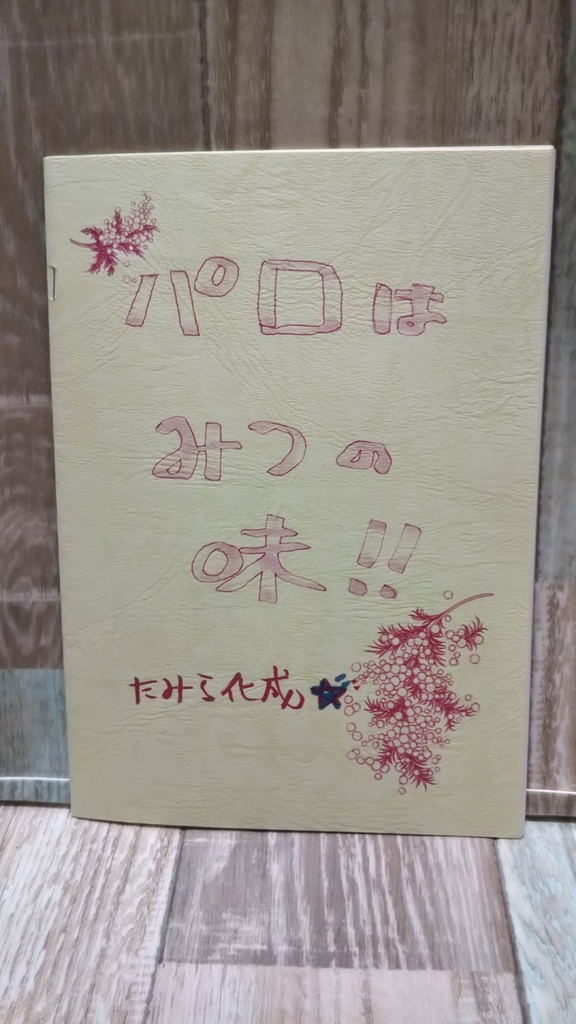 パロは
みつの
味!!
たみら化成